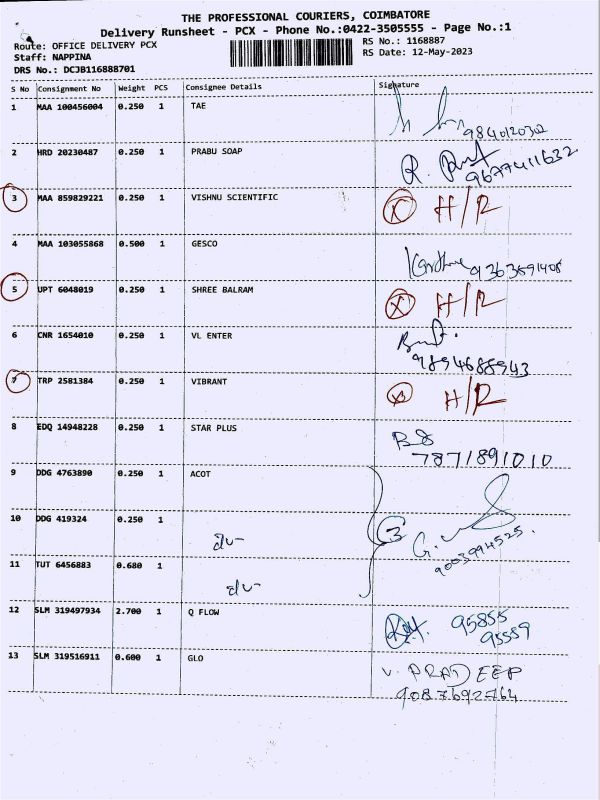 THE PROFESSIONAL COURIERS, COIMBATORE
Delivery Runsheet - PCX - Phone No.:0422-3505555 - Page No.:1
Route: OFFICE DELIVERY PCX RS No.: 1168887
Staff: NAPPINA RS Date: 12-May-2023
DRS No.: DCJB116888701
S No Consignment No Weight PCS Consignee Details Signature
1 MAA 100456004 0.250 1 TAE
9840120302
2 HRD 20230487 0.250 1 PRABU SOAP
9677411632
3 MAA 859829221 0.250 1 VISHNU SCIENTIFIC X H/R
4 MAA 103055868 0.500 1 GESCO
9363591408
5 UPT 6048019 0.250 1 SHREE BALRAM X H/R
6 CNR 1654010 0.250 1 VL ENTER
9894688943
7 TRP 2581384 0.250 1 VIBRANT X H/R
8 EDQ 14948228 0.250 1 STAR PLUS
7871891010
9 DDG 4763890 0.250 1 ACOT
10 DDG 419324 0.250 1 3
9003994525.
11 TUT 6456883 0.680 1
12 SLM 319497934 2.700 1 Q FLOW 95855
95559
13 SLM 319516911 0.600 1 GLO V. PRADEEP
9087692764